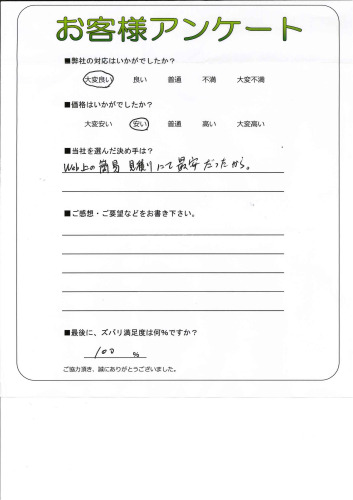 お客様アンケート
■弊社の対応はいかがでしたか?
大変良い 良い 普通 不満 大変不満
■価格はいかがでしたか?
大変安い 安い 普通 高い 大変高い
■当社を選んだ決め手は?
Web上の簡易見積りにて最安だったから。
■ご感想・ご要望などをお書き下さい。
■最後に、ズバリ満足度は何%ですか?
100 %
ご協力頂き、誠にありがとうございました。